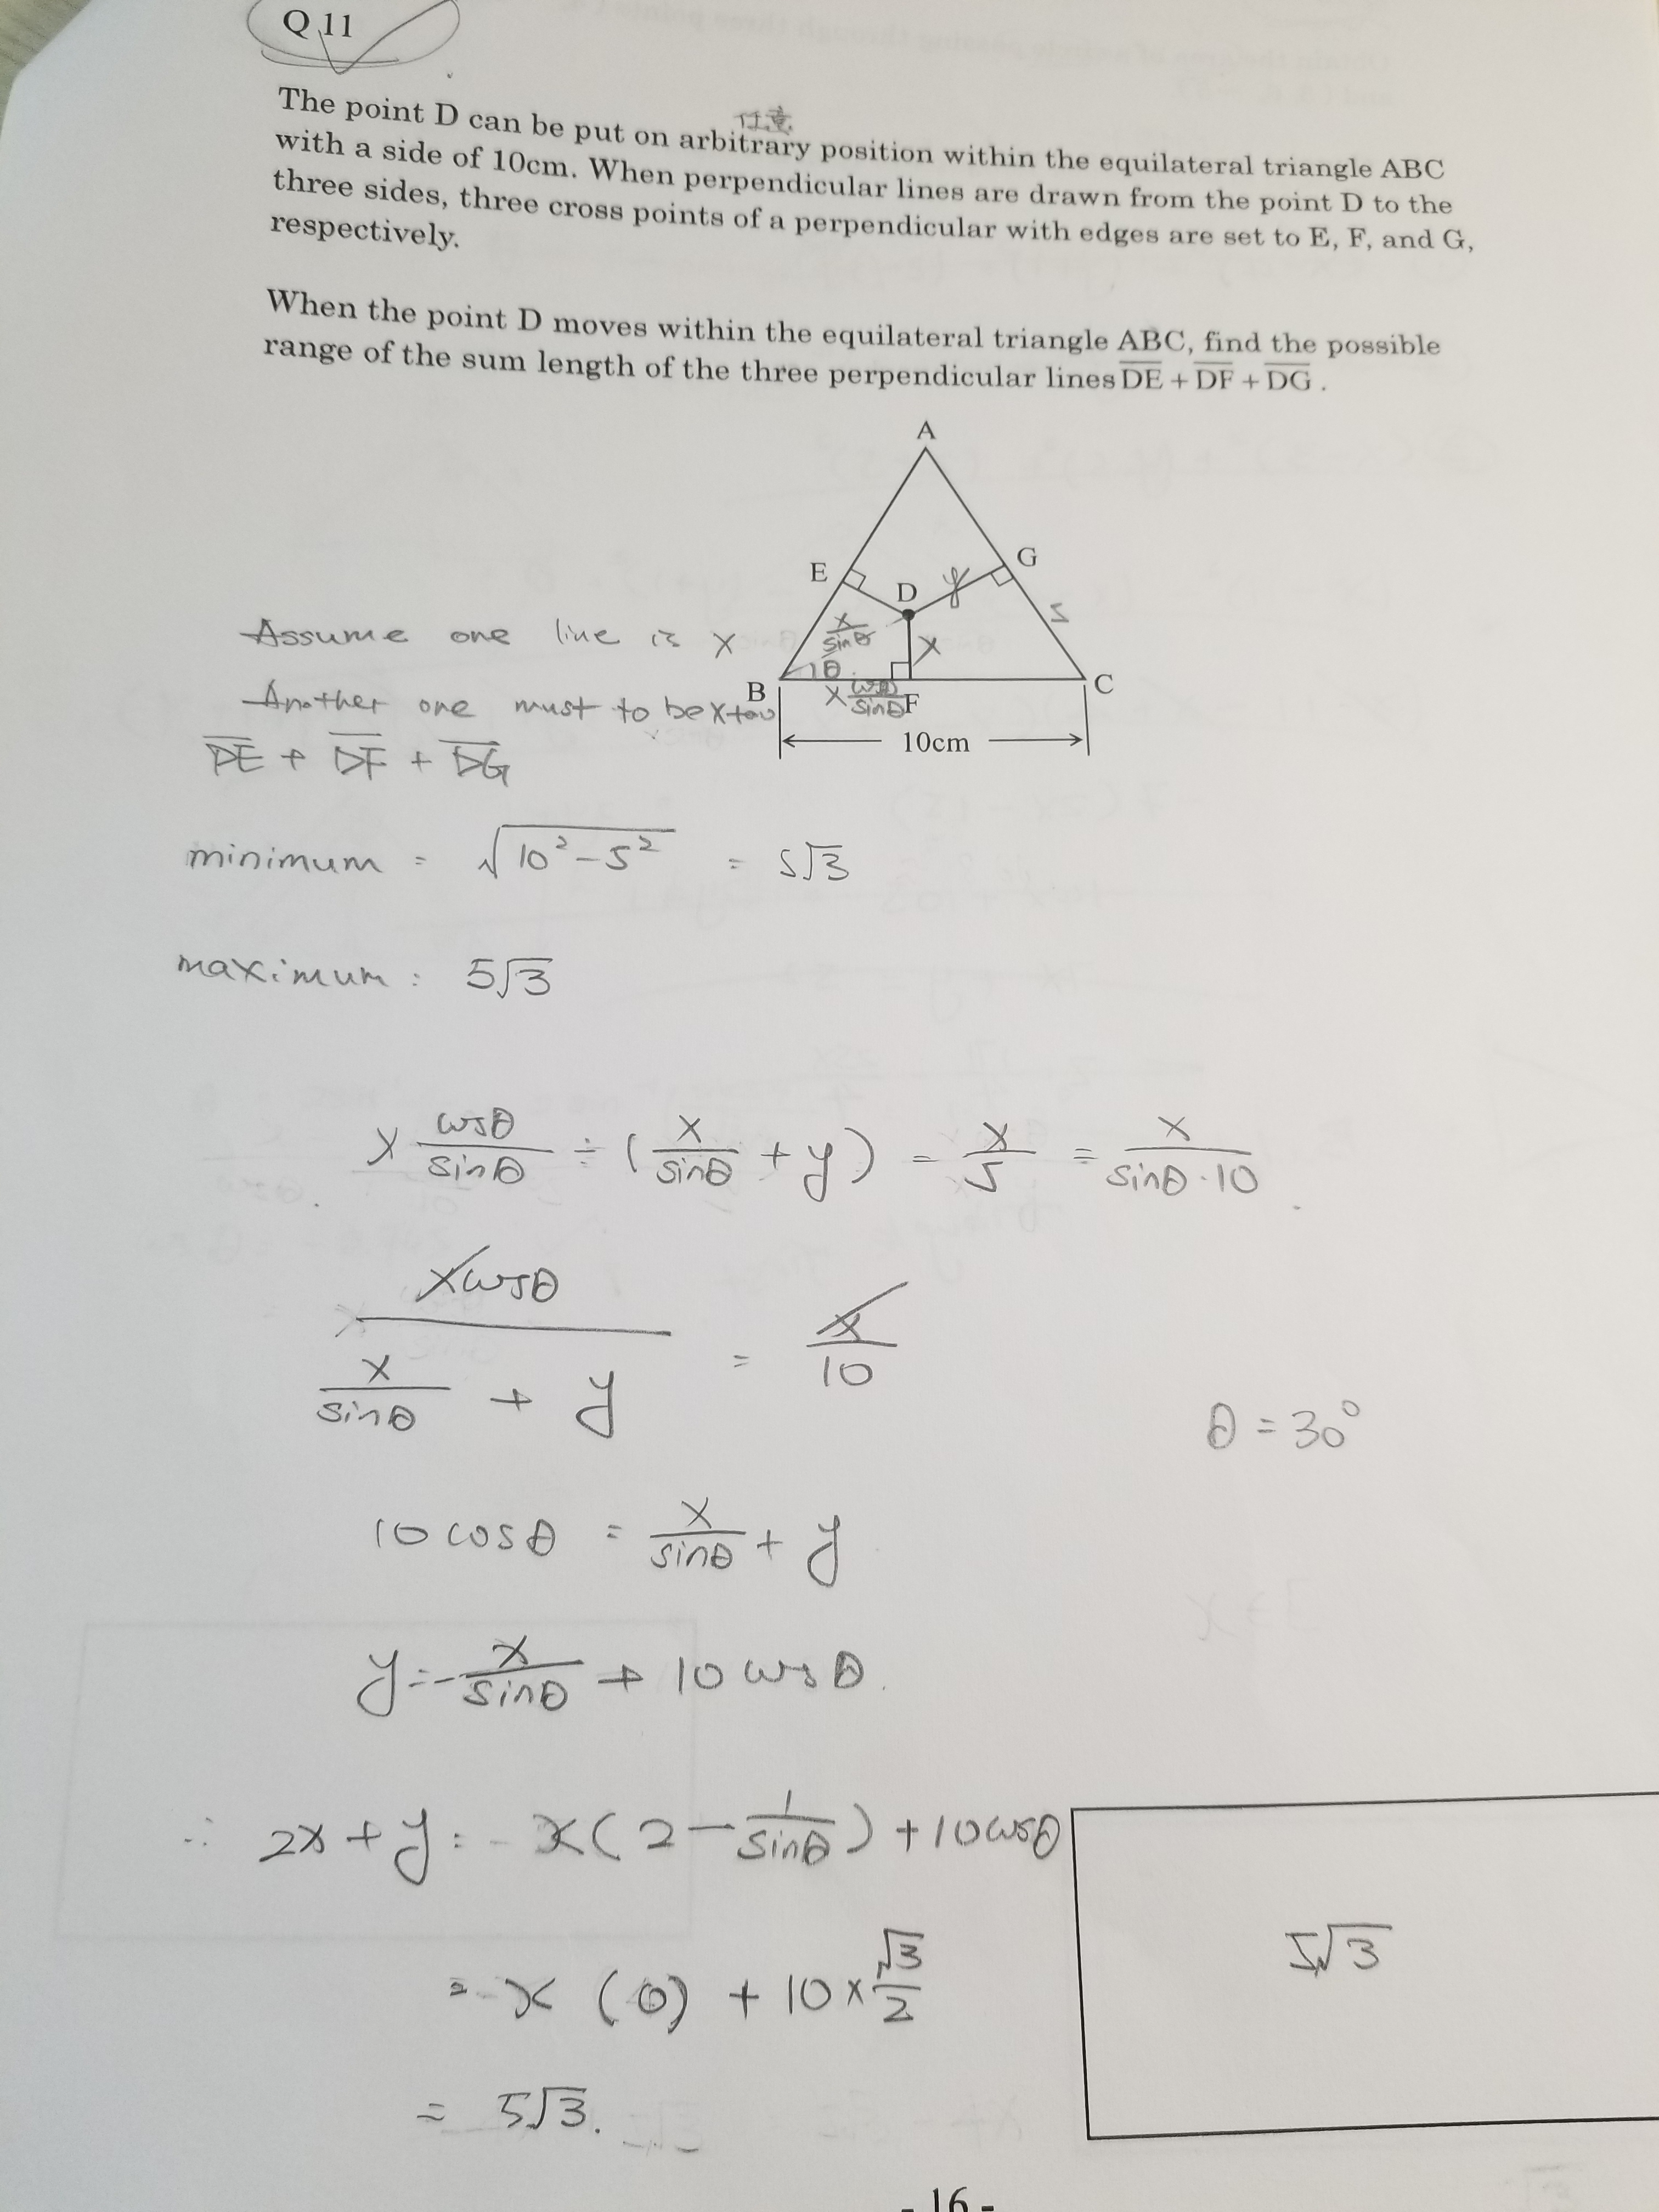 Q 11
任意
The point D can be put on arbitrary position within the equilateral triangle ABC
with a side of 10cm. When perpendicular lines are drawn from the point D to the
three sides, three cross points of a perpendicular with edges are set to E, F, and G,
respectively.
When the point D moves within the equilateral triangle ABC, find the possible
range of the sum length of the three perpendicular lines D̅E̅ + D̅F̅ + D̅G̅ .
A
E
G
D
y
5
x/sinθ
x
θ
B
x cosθ/sinθ
F
C
10cm
Assume one line is x
Another one must to be x too
D̅E̅ + D̅F̅ + D̅G̅
minimum = √(10² - 5²) = 5√3
maximum : 5√3
x cosθ/sinθ ÷ (x/sinθ + y) = x/5 = x/(sinθ · 10)
xcosθ/(x/sinθ + y) = x/10
θ = 30°
10 cosθ = x/sinθ + y
y = -x/sinθ + 10 cosθ.
∴ 2x + y = x(2 - 1/sinθ) + 10cosθ
= x (0) + 10 × √3/2
5√3
= 5√3.
- 16 -